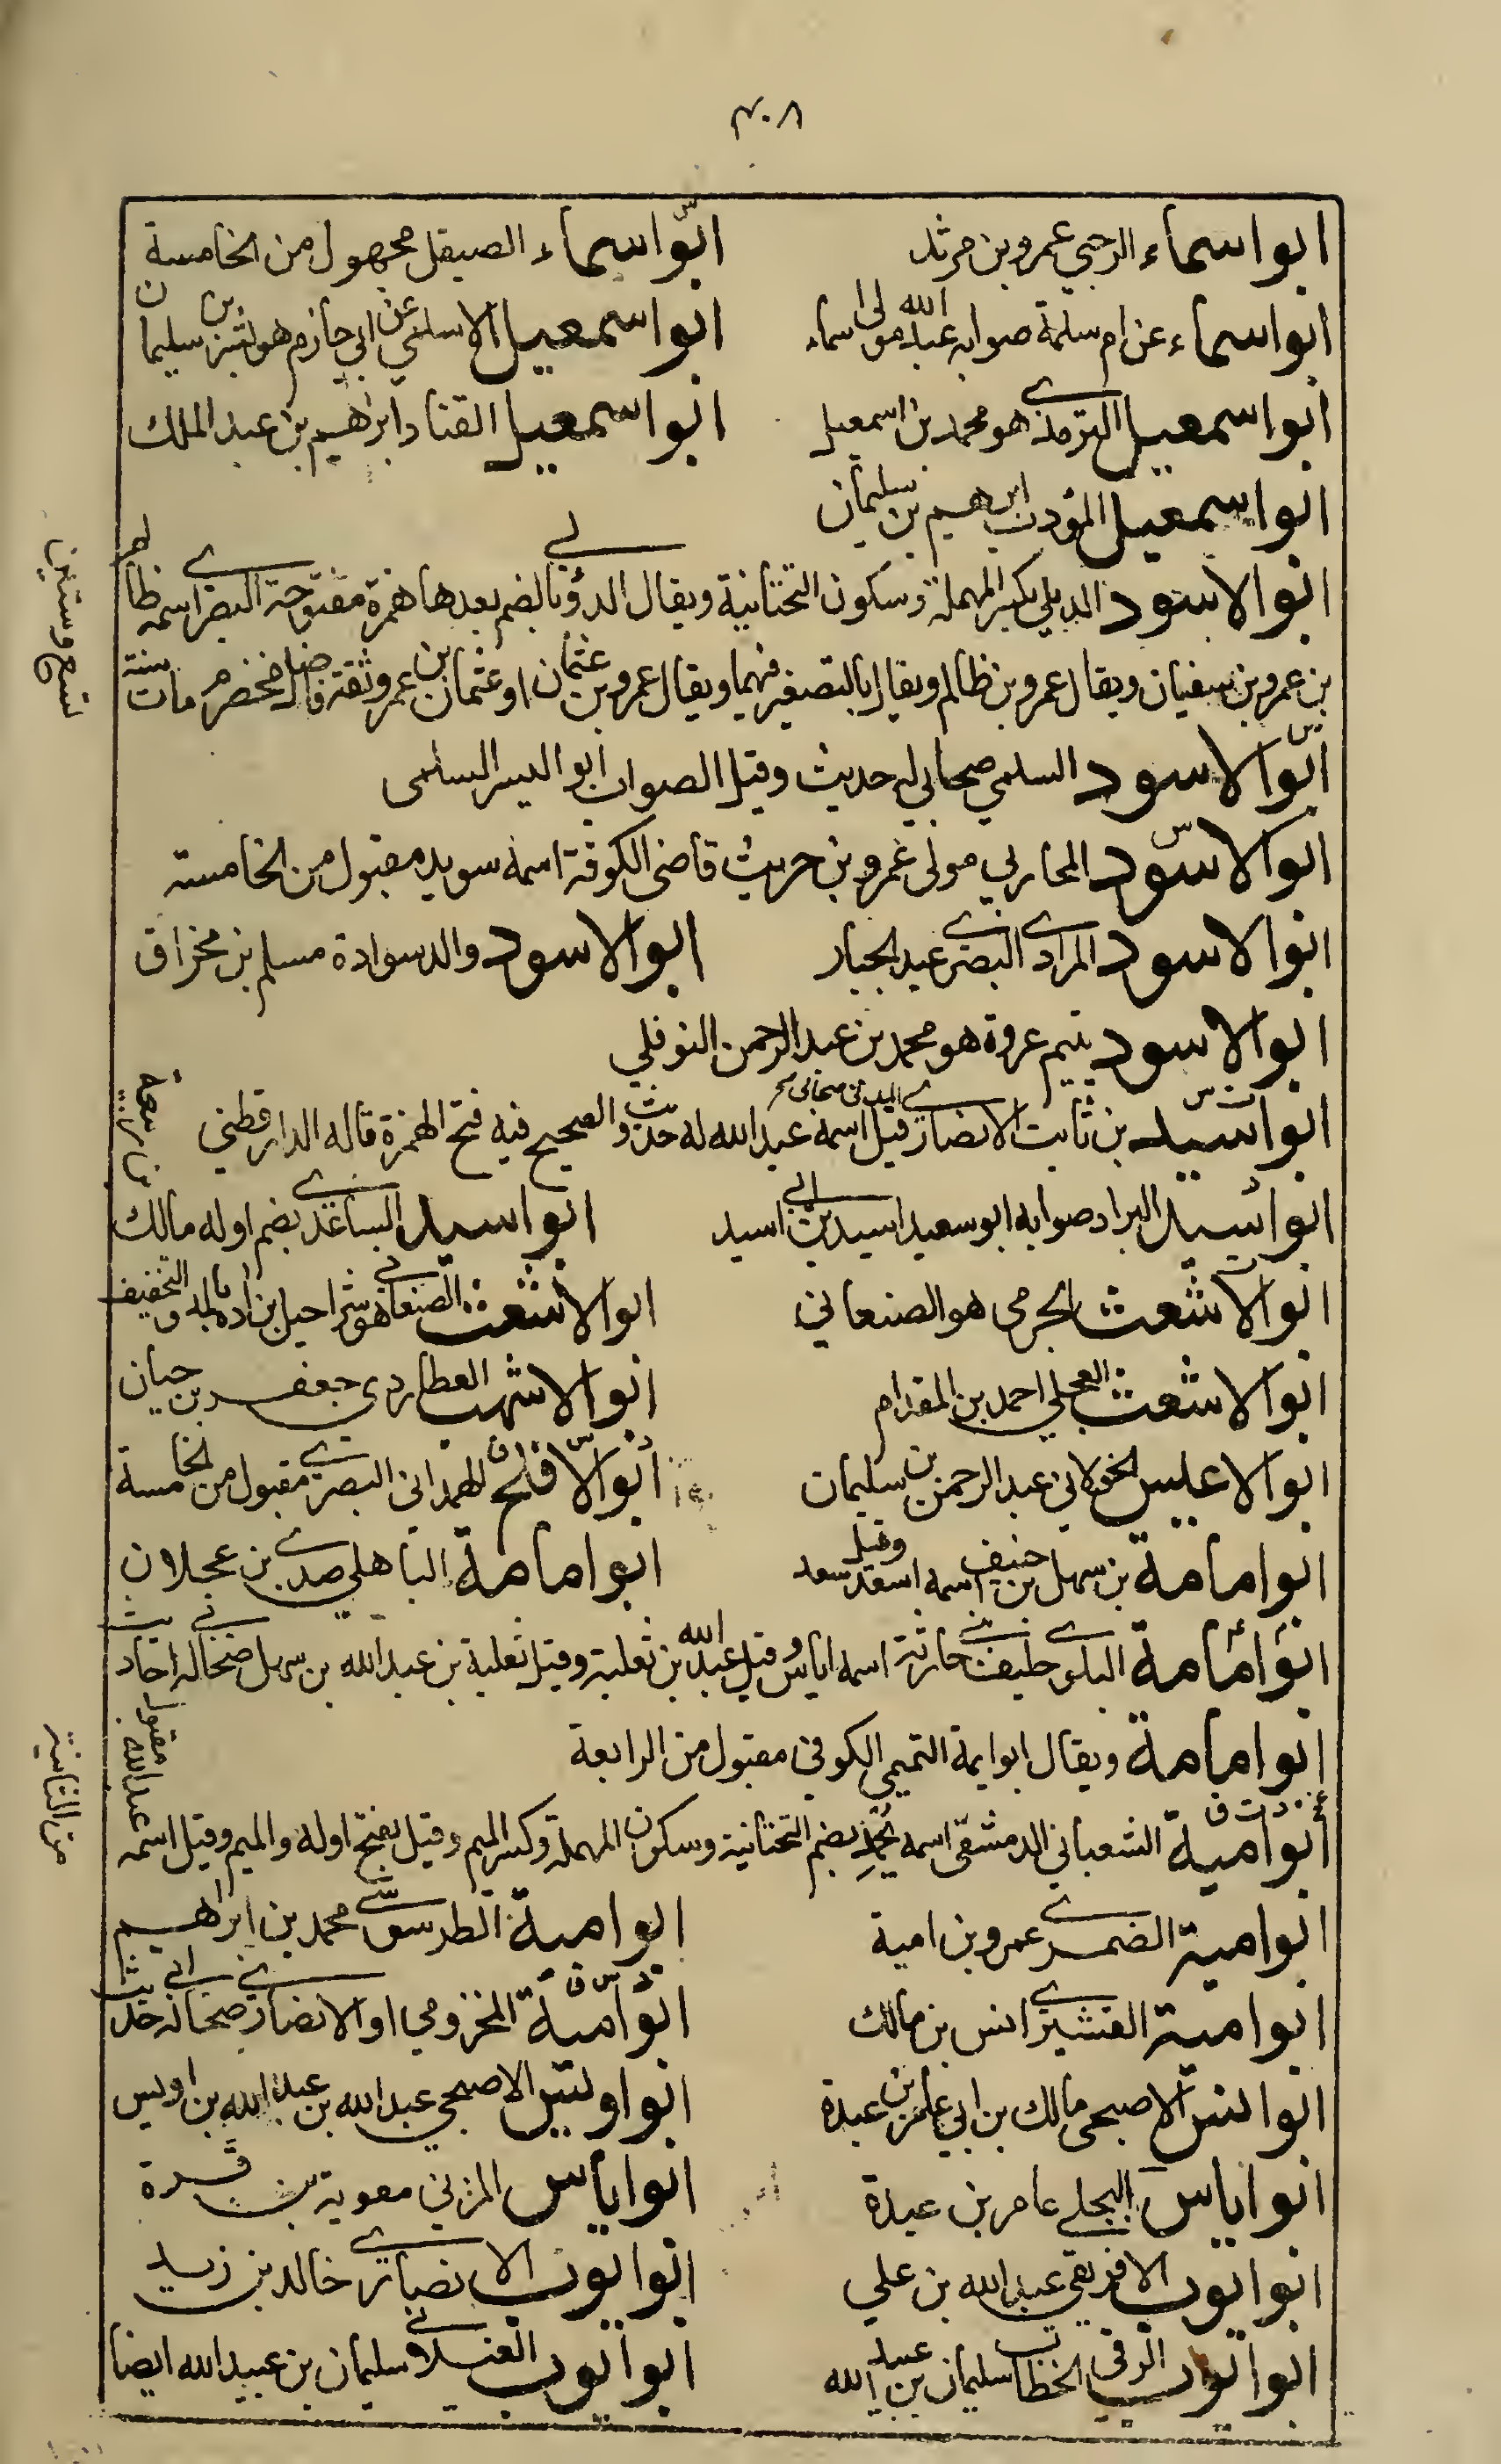 ٣٠٨
ابو اسماء الرحبي عمرو بن مرثد
ابو اسماء الصيقل مجهول من الخامسة
ابو اسماء عن ام سلمة صوابه عبد الله مولى اسماء
ابو اسمعيل الاسلمي عن ابي حازم هو بشير بن سليمان
ابو اسمعيل الترمذي هو محمد بن اسمعيل
ابو اسمعيل القناد ابراهيم بن عبد الملك
ابو اسمعيل المؤدب ابرهيم بن سليمان
ابو الاسود الديلي بكسر المهملة وسكون التحتانية ويقال الدؤلي بالضم بعدها همزة مفتوحة البصري اسمه ظالم
بن عمرو بن سفيان ويقال عمرو بن ظالم ويقال بالتصغير فيهما ويقال عمرو بن عثمان او عثمان بن عمرو ثقة فاضل مخضرم مات سنة
تسع وستين
ابو الاسود السلمي صحابي له حديث وقيل الصواب ابو اليسر السلمى
ابو الاسود المحاربي مولى عمرو بن حريث قاضى الكوفة اسمه سويد مقبول من الخامسة
ابو الاسود المرادي البصري عبد الجبار
ابو الاسود والد سوادة مسلم بن مخراق
ابو الاسود يتيم عروة هو محمد بن عبد الرحمن النوفلي
ابو اسيد بن ثابت الانصاري قيل اسمه عبد الله له حديث والصحيح فيه فتح الهمزة قاله الدارقطني
ابو اسيد البراد صوابه ابو سعيد اسيد بن ابي اسيد
ابو اسيد الساعدي بضم اوله مالك
بن ربيعة
ابو الاشعث الجرمى هو الصنعاني
ابو الاشعث الصنعاني هو شراحيل بن اده بالمد والتخفيف
ابو الاشعث العجلي احمد بن المقدام
ابو الاشهب العطاردي جعفر بن حيان
ابو الاعيس الخولاني عبد الرحمن بن سليمان
ابو الافلح الهمداني البصري مقبول من الخامسة
ابو امامة بن سهل بن حنيف اسمه اسعد وقيل سعد
ابو امامة الباهلي صدي بن عجلان
ابو امامة البلوي حليف بني حارثة اسمه اياس وقيل عبد الله بن ثعلبة وقيل ثعلبة بن عبد الله بن سهل صحابي له احاديث
ابو امامة ويقال ابو ايمة التميمي الكوفي مقبول من الرابعة
ابو امية الشعباني الدمشقي اسمه يحمد بضم التحتانية وسكون المهملة وكسر الميم وقيل بفتح اوله والميم وقيل اسمه
عبد الله مقبول
من الثانية
ابو امية الضمري عمرو بن امية
ابو امية الطرسوسي محمد بن ابراهيم
ابو امية القشيري انس بن مالك
ابو امية المخزومي او الانصاري صحابي له حديث
ابو انس الاصبحى مالك بن ابي عامر بن عبدة
ابو اويس الاصبحي عبد الله بن عبد الله بن اويس
ابو اياس البجلي عامر بن عبدة
ابو اياس المزني معوية بن قرة
ابو ايوب الافريقي عبد الله بن علي
ابو ايوب الانصاري خالد بن زيد
ابو ايوب الرقي الخطاب سليمان بن عبيد الله
ابو ايوب الغيلاني سليمان بن عبيد الله ايضا